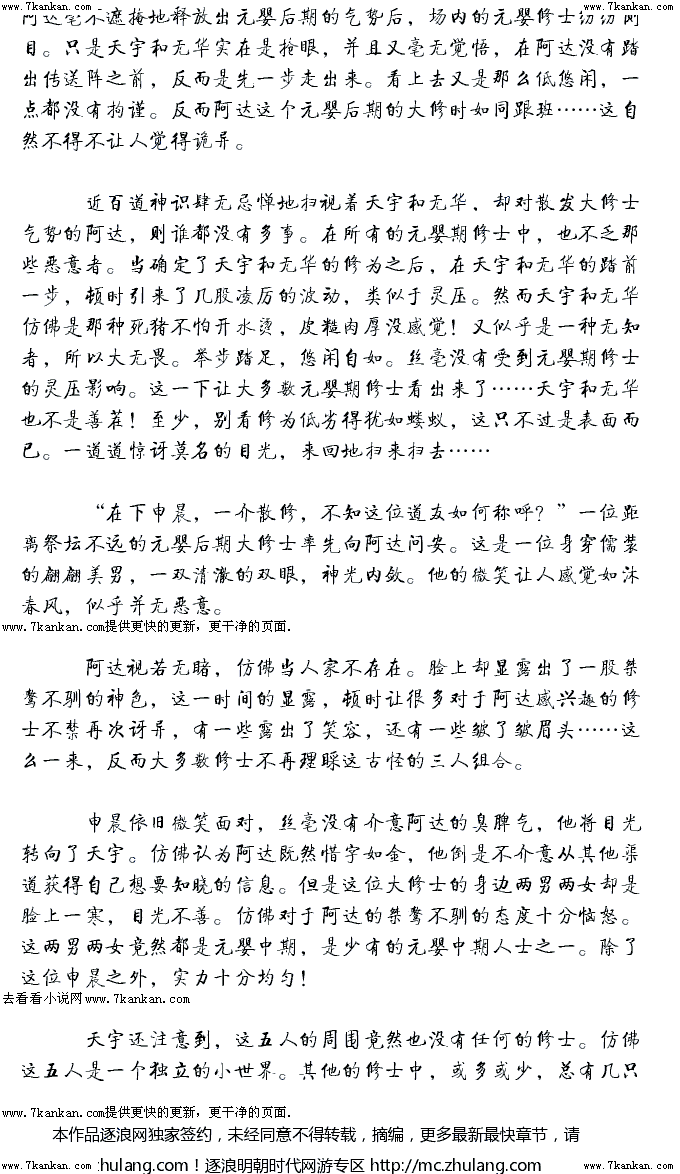 www.7kankan.com www.7kankan.com
阿达毫不遮掩地释放出元婴后期的气势后，场内的元婴修士纷纷侧
目。只是天宇和无华实在是抢眼，并且又毫无觉悟，在阿达没有踏
出传送阵之前，反而是先一步走出来。看上去又是那么低悠闲，一
点都没有拘谨。反而阿达这个元婴后期的大修时如同跟班……这自
然不得不让人觉得诡异。
近百道神识肆无忌惮地扫视着天宇和无华，却对散发大修士
气势的阿达，则谁都没有多事。在所有的元婴期修士中，也不乏那
些恶意者。当确定了天宇和无华的修为之后，在天宇和无华的踏前
一步，顿时引来了几股凌厉的波动，类似于灵压。然而天宇和无华
仿佛是那种死猪不怕开水烫，皮糙肉厚没感觉！又似乎是一种无知
者，所以大无畏。举步踏足，悠闲自如。丝毫没有受到元婴期修士
的灵压影响。这一下让大多数元婴期修士看出来了……天宇和无华
也不是善茬！至少，别看修为低劣得犹如蝼蚁，这只不过是表面而
已。一道道惊讶莫名的目光，来回地扫来扫去……
“在下申晨，一介散修，不知这位道友如何称呼？”一位距
离祭坛不远的元婴后期大修士率先向阿达问安。这是一位身穿儒装
的翩翩美男，一双清澈的双眼，神光内敛。他的微笑让人感觉如沐
春风，似乎并无恶意。
www.7kankan.com提供更快的更新，更干净的页面.
阿达视若无睹，仿佛当人家不存在。脸上却显露出了一股桀
骜不驯的神色，这一时间的显露，顿时让很多对于阿达感兴趣的修
士不禁再次讶异，有一些露出了笑容，还有一些皱了皱眉头……这
么一来，反而大多数修士不再理睬这古怪的三人组合。
申晨依旧微笑面对，丝毫没有介意阿达的臭脾气，他将目光
转向了天宇。仿佛认为阿达既然惜字如金，他倒是不介意从其他渠
道获得自己想要知晓的信息。但是这位大修士的身边两男两女却是
脸上一寒，目光不善。仿佛对于阿达的桀骜不驯的态度十分恼怒。
这两男两女竟然都是元婴中期，是少有的元婴中期人士之一。除了
这位申晨之外，实力十分均匀！
去看看小说网www.7kankan.com
天宇还注意到，这五人的周围竟然也没有任何的修士。仿佛
这五人是一个独立的小世界。其他的修士中，或多或少，总有几只
www.7kankan.com提供更快的更新，更干净的页面.
本作品逐浪网独家签约，未经同意不得转载，摘编，更多最新最快章节，请
www.7kankan.com zhulang.com！逐浪明朝时代网游专区 http://mc.zhulang.com www.7kankan.com